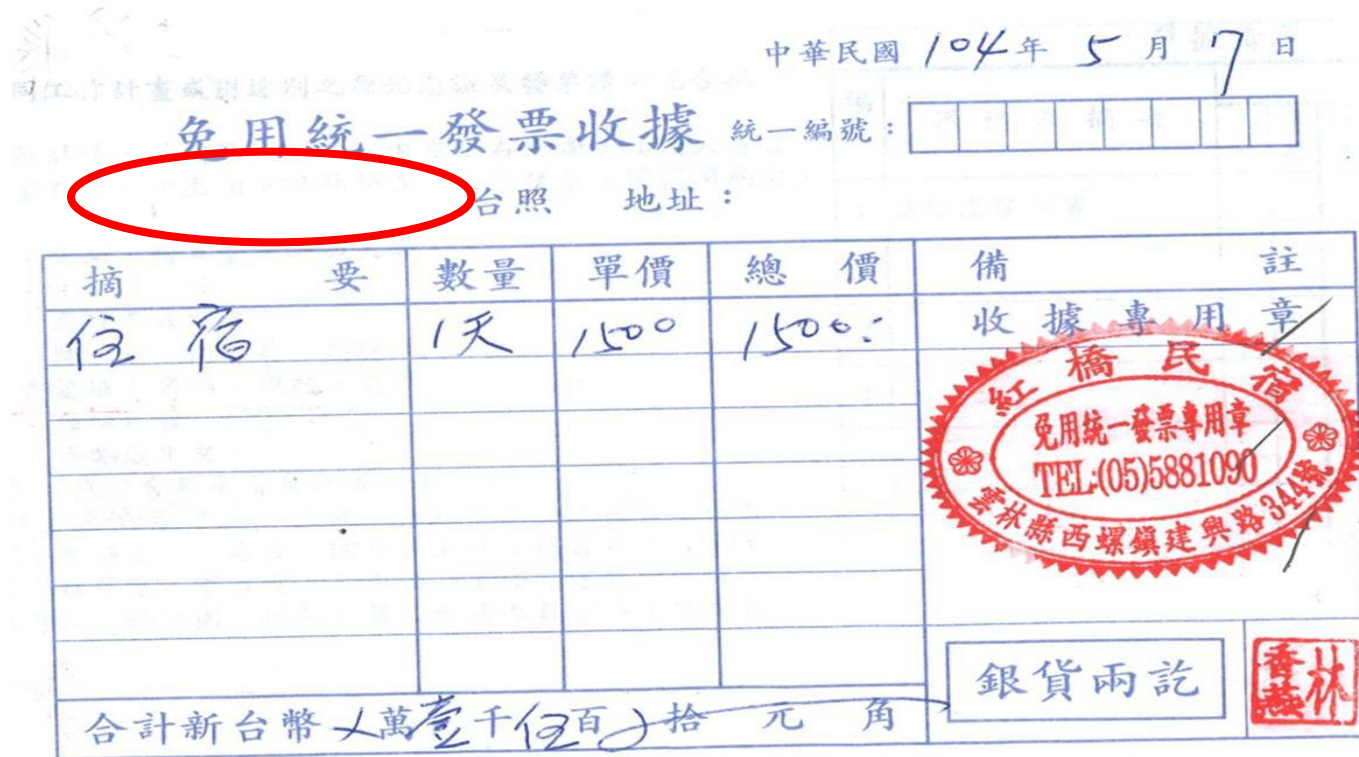 中華民國 104年 5 月 17 日
免用統一發票收據 統一編號：
台照 地址：
摘要 數量 單價 總價 備註
住宿 1天 1500 1500.- 收據專用章
紅橋民宿
免用統一發票專用章
TEL:(05)5881090
雲林縣西螺鎮建興路344號
銀貨兩訖
林香燕
合計新台幣 萬壹千伍百 拾 元 角